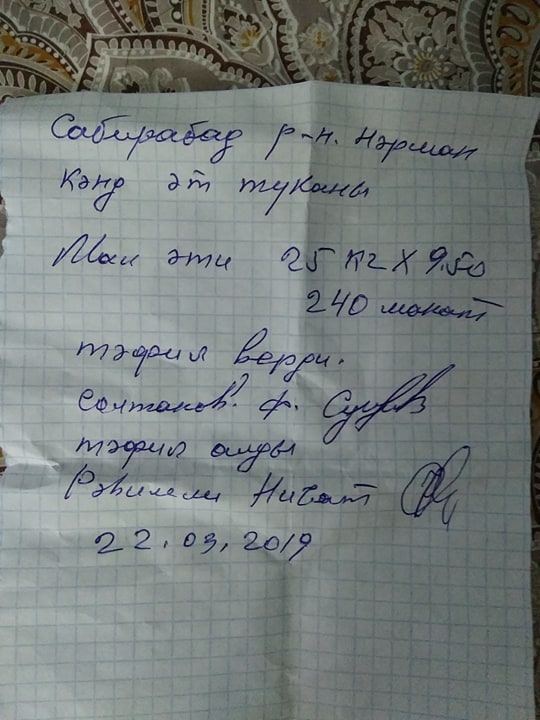 Сабирабад р-н. Нәрман
Кәнд әт туканы
Мал эти 25 кг X 9.50
240 манат
тәфил верди.
Солтанов. Ф.
тәфил алды
Рәһимли Нибат
22.03.2019